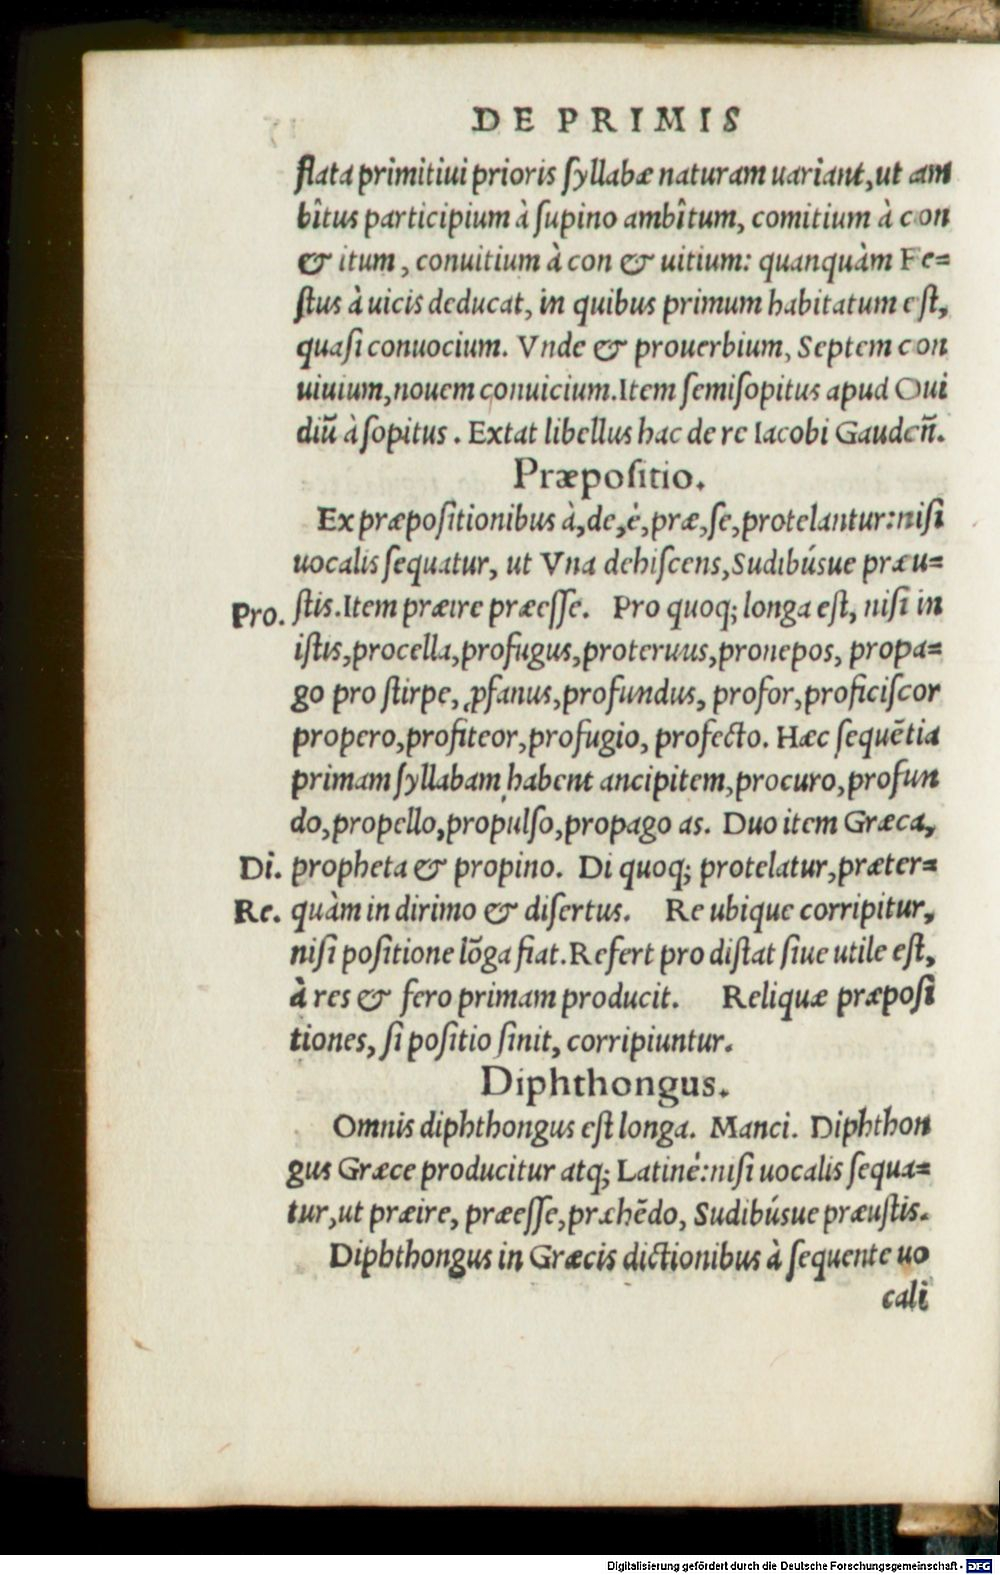 DE PRIMIS
flata primitiui prioris ſyllabæ naturam uariant,ut am
bîtus participium à ſupino ambîtum, comitium à con
& itum, conuitium à con & uitium: quanquàm Fe=
ſtus à uicis deducat, in quibus primum habitatum eſt,
quaſi conuocium. Vnde & prouerbium, Septem con
uiuium,nouem conuicium.Item ſemiſopitus apud Oui
diũ à ſopitus. Extat libellus hac de re Iacobi Gaudeñ.
Præpoſitio.
Ex præpoſitionibus à,de,è,præ,ſe,protelantur:niſi
uocalis ſequatur, ut Vna dehiſcens,Sudibúsue præu=
Pro. ſtis.Item præire præeſſe. Pro quoq; longa eſt, niſi in
iſtis,procella,profugus,proteruus,pronepos, propa=
go pro ſtirpe, ꝓfanus,profundus, profor,proficiſcor
propero,profiteor,profugio, profecto. Hæc ſequẽtia
primam ſyllabam habent ancipitem,procuro,profun
do,propello,propulſo,propago as. Duo item Græca,
Di. propheta & propino. Di quoq; protelatur,præter=
Re. quàm in dirimo & diſertus. Re ubique corripitur,
niſi poſitione lõga fiat.Refert pro diſtat ſiue utile eſt,
à res & fero primam producit. Reliquæ præpoſi
tiones, ſi poſitio ſinit, corripiuntur.
Diphthongus.
Omnis diphthongus eſt longa. Manci. Diphthon
gus Græce producitur atq; Latinè:niſi uocalis ſequa=
tur,ut præire, præeſſe,præhẽdo, Sudibúsue præuſtis.
Diphthongus in Græcis dictionibus à ſequente uo
cali
Digitalisierung gefördert durch die Deutsche Forschungsgemeinschaft - DFG